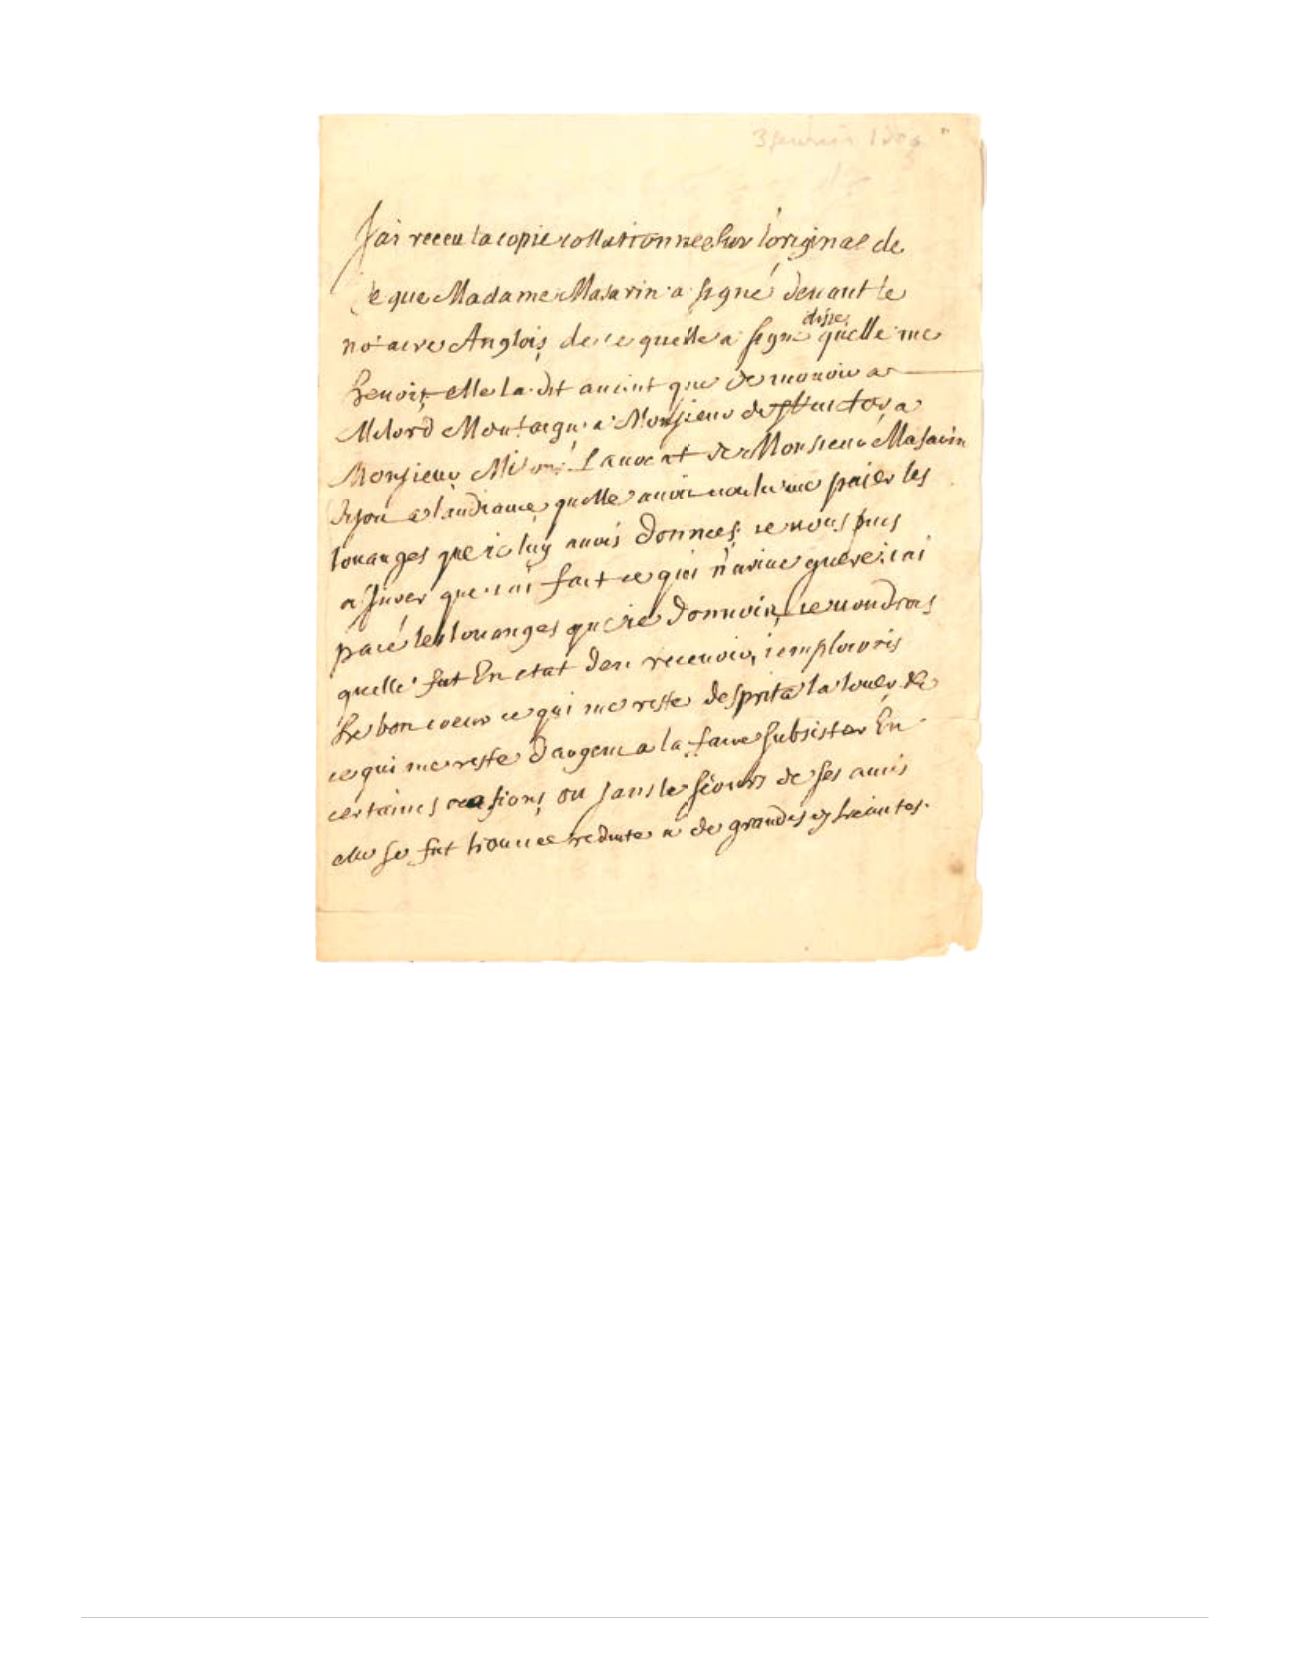 3 fevrier
J'ai receu la copie collationnee sur l'original de
Ce que Madame Masarin a signé devant le
notaere Anglois, de ce quelle a signé quelle me
disse
devoir, elle la dit auant que de mourir a
Milord Montaegu, a Monsieur de
Monsieur Milon, l'auocat de Monsieur Masarin
quelle auoit voulu me paier les
louanges que ie luy auois donnees, ie vous puis
que iai fait ce qui n'ariue guere, iai
paié les louanges que ie donnois, ie voudrois
quelle fut En etat den receuoir, iemploirois
De bon coeur ce qui me reste desprit a la louer &
ce qui me reste dargent a la faire subsister En
certaines ocasions, ou sans le secours de ses amis
elle se fut trouuee reduite a de grandes extreautes.